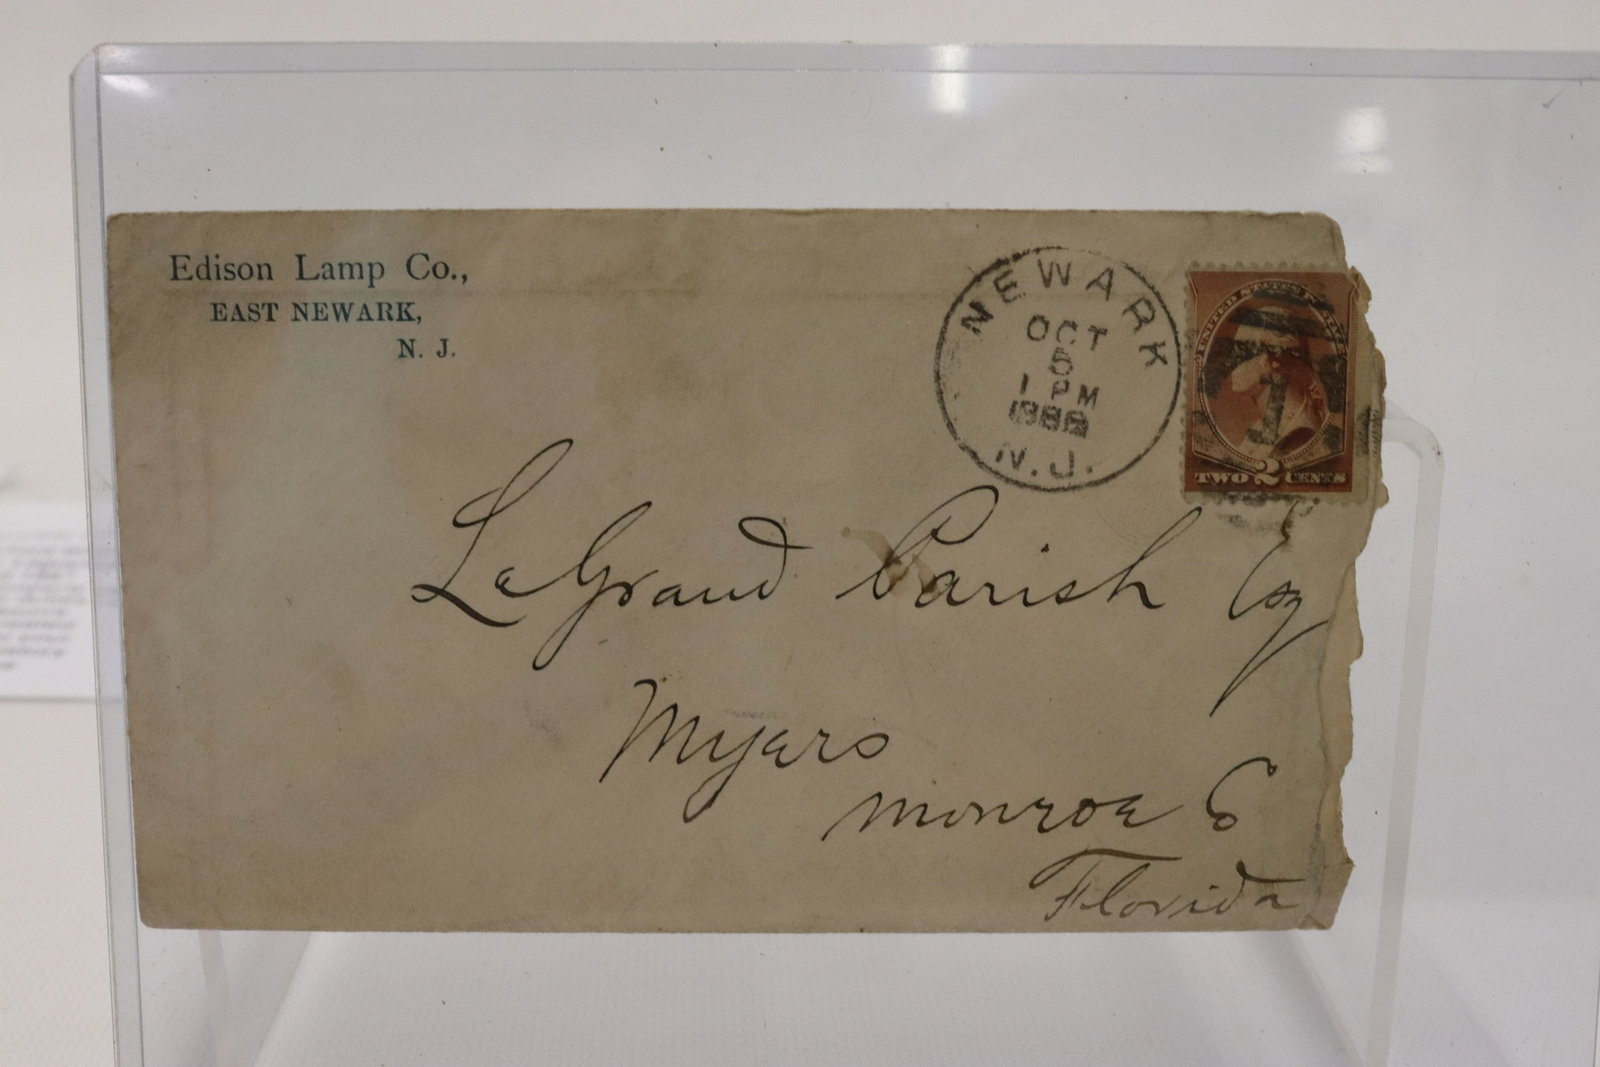 Edison Lamp Co.,
EAST NEWARK,
N. J.
NEWARK
OCT
5
1 PM
N.J.
UNITED STATES
TWO 2 CENTS
LeGrand Parish Esq
Myers
Monroe Co
Florida